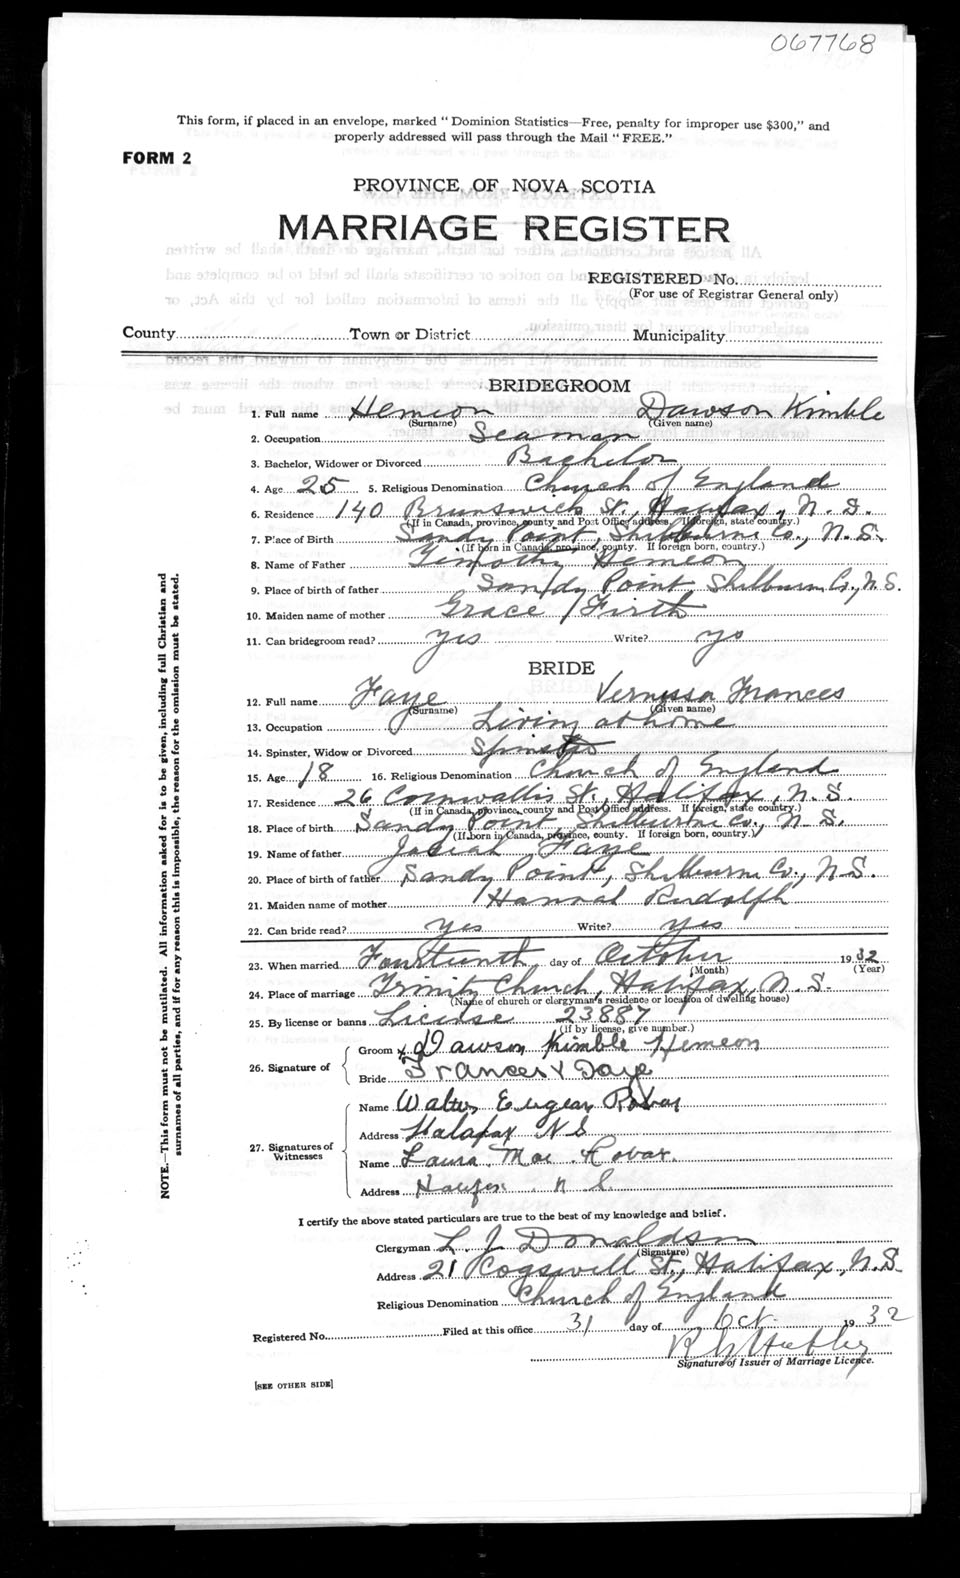 067768
This form, if placed in an envelope, marked "Dominion Statistics—Free, penalty for improper use $300," and
properly addressed will pass through the Mail "FREE."
FORM 2
PROVINCE OF NOVA SCOTIA
MARRIAGE REGISTER
REGISTERED No.
(For use of Registrar General only)
County Town or District Municipality
BRIDEGROOM
1. Full name Hemeon Dawson Kimble
(Surname) (Given name)
2. Occupation Seaman
3. Bachelor, Widower or Divorced Bachelor
4. Age 25 5. Religious Denomination Church of England
6. Residence 140 Brunswick St., Halifax, N. S.
(If in Canada, province, county and Post Office address. If foreign, state country.)
7. Place of Birth Sandy Point, Shelburne Co., N.S.
(If born in Canada, province, county. If foreign born, country.)
8. Name of Father Timothy Hemeon
9. Place of birth of father Sandy Point Shelburn Co., N.S.
10. Maiden name of mother Grace Firth
11. Can bridegroom read? yes Write? yes
BRIDE
12. Full name Faye Vernissa Frances
(Surname) (Given name)
13. Occupation Living at home
14. Spinster, Widow or Divorced Spinster
15. Age 18 16. Religious Denomination Church of England
17. Residence 26 Cornwallis St., Halifax, N.S.
(If in Canada, province, county and Post Office address. If foreign, state country.)
18. Place of birth Sandy Point, Shelburne Co., N.S.
(If born in Canada, province, county. If foreign born, country.)
19. Name of father Josiah Faye
20. Place of birth of father Sandy Point, Shelburne Co., N.S.
21. Maiden name of mother Hannah Rudolph
22. Can bride read? yes Write? yes
23. When married Fourteenth day of October 1932
(Month) (Year)
24. Place of marriage Trinity Church, Halifax, N.S.
(Name of church or clergyman's residence or location of dwelling house)
25. By license or banns License 23887
(If by license, give number.)
26. Signature of
Groom x Dawson Kimble Hemeon
Bride Frances V Faye
27. Signatures of Witnesses
Name Walter Eugean Robar
Address Halafax N S
Name Laura Mae Robar.
Address Halifax N S
I certify the above stated particulars are true to the best of my knowledge and belief.
Clergyman L. J. Donaldson
(Signature)
Address 21 Cogswell St., Halifax, N.S.
Religious Denomination Church of England
Registered No. Filed at this office 31 day of Oct. 1932
Signature of Issuer of Marriage Licence.
[SEE OTHER SIDE]
NOTE.—This form must not be mutilated. All information asked for is to be given, including full Christian and
surnames of all parties, and if for any reason this is impossible, the reason for the omission must be stated.